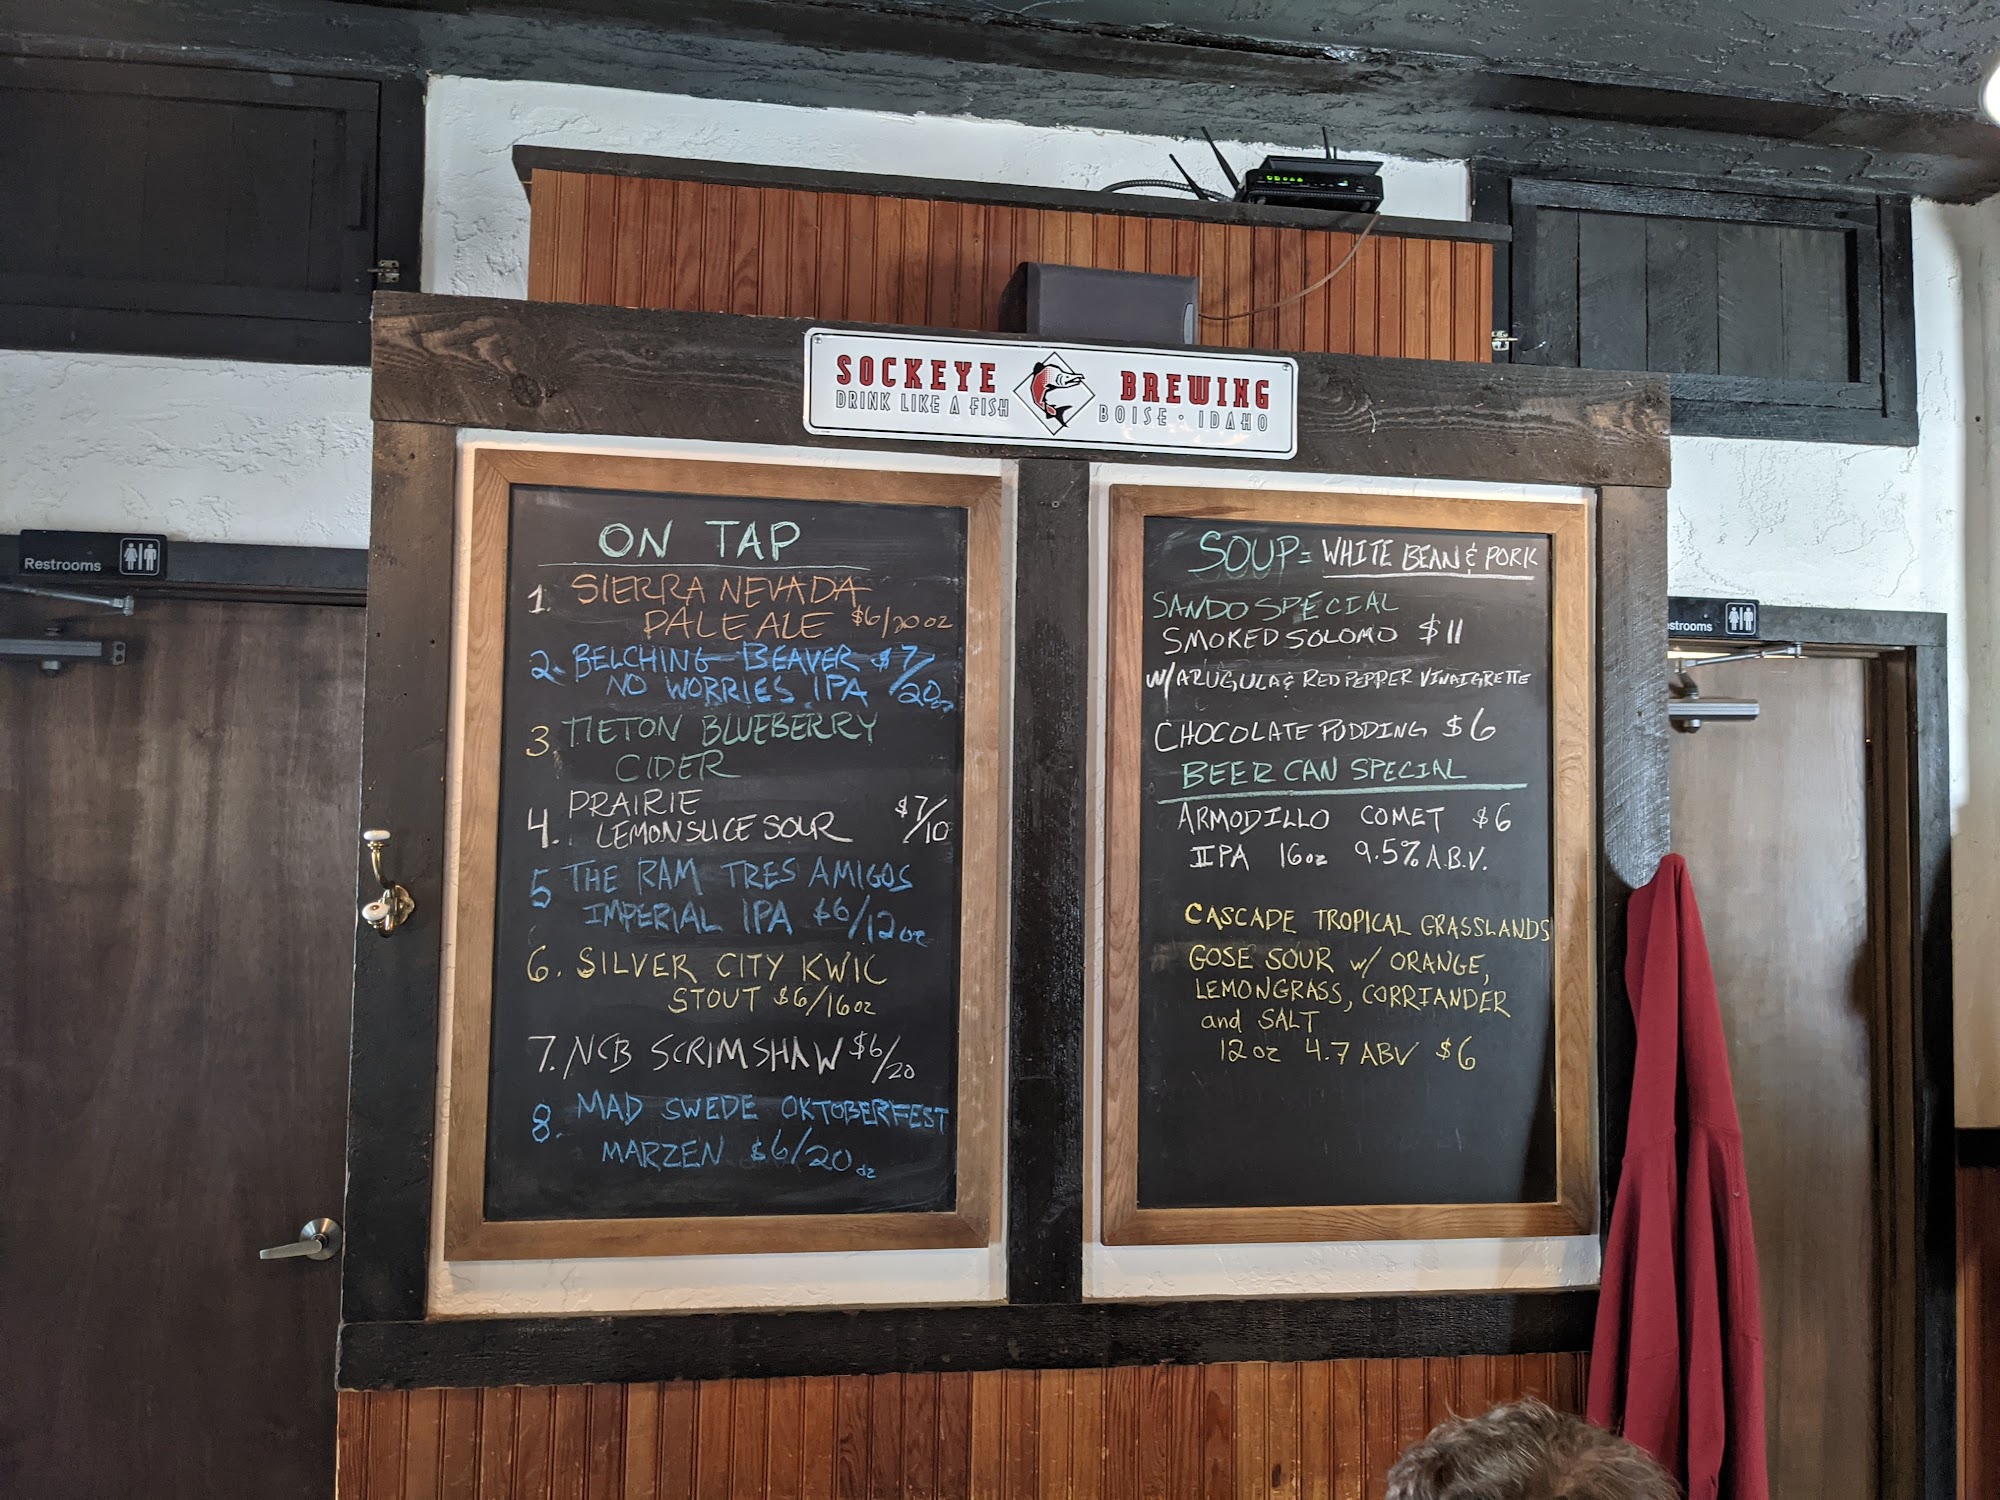 SOCKEYE BREWING
DRINK LIKE A FISH BOISE · IDAHO
Restrooms
ON TAP
1. SIERRA NEVADA
PALE ALE $6/20oz
2. BELCHING BEAVER $7/20oz
NO WORRIES IPA
3. TIETON BLUEBERRY
CIDER
4. PRAIRIE
LEMON SLICE SOUR $7/10
5 THE RAM TRES AMIGOS
IMPERIAL IPA $6/12oz
6. SILVER CITY KWIC
STOUT $6/16oz
7. NCB SCRIMSHAW $6/20
8. MAD SWEDE OKTOBERFEST
MARZEN $6/20oz
SOUP= WHITE BEAN & PORK
SANDO SPECIAL
SMOKED SOLOMO $11
W/ ARUGULA & RED PEPPER VINAIGRETTE
CHOCOLATE PUDDING $6
BEER CAN SPECIAL
ARMODILLO COMET $6
IIPA 16oz 9.5% A.B.V.
CASCADE TROPICAL GRASSLANDS
GOSE SOUR w/ ORANGE,
LEMONGRASS, CORRIANDER
and SALT
12oz 4.7 ABV $6
strooms